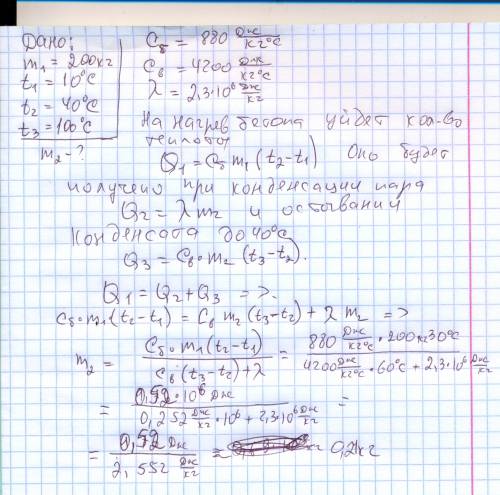 Дано:
m₁ = 200кг
t₁ = 10°C
t₂ = 40°C
t₃ = 100°C
m₂ - ?
Cб = 880 Дж/кг°C
Cв = 4200 Дж/кг°C
λ = 2,3·10⁶ Дж/кг
На нагрев бетона уйдет кол-во
теплоты
Q₁ = Cб m₁ (t₂-t₁) Оно будет
получено при конденсации пара
Q₂ = λ m₂ и остывании
конденсата до 40°C
Q₃ = Cв · m₂ (t₃-t₂).
Q₁ = Q₂ + Q₃ =>.
Cб · m₁ (t₂-t₁) = Cв m₂ (t₃-t₂) + λ m₂ =>
m₂ = Cб · m₁ (t₂-t₁) / Cв (t₃-t₂) + λ = 880 Дж/кг°C · 200 · 30°C / 4200 Дж/кг°C · 60°C + 2,3·10⁶ Дж/кг
= 0,52 · 10⁶ Дж / 0,252 Дж/кг · 10⁶ + 2,3·10⁶ Дж/кг =
= 0,52 Дж / 2,552 Дж/кг = 0,21кг